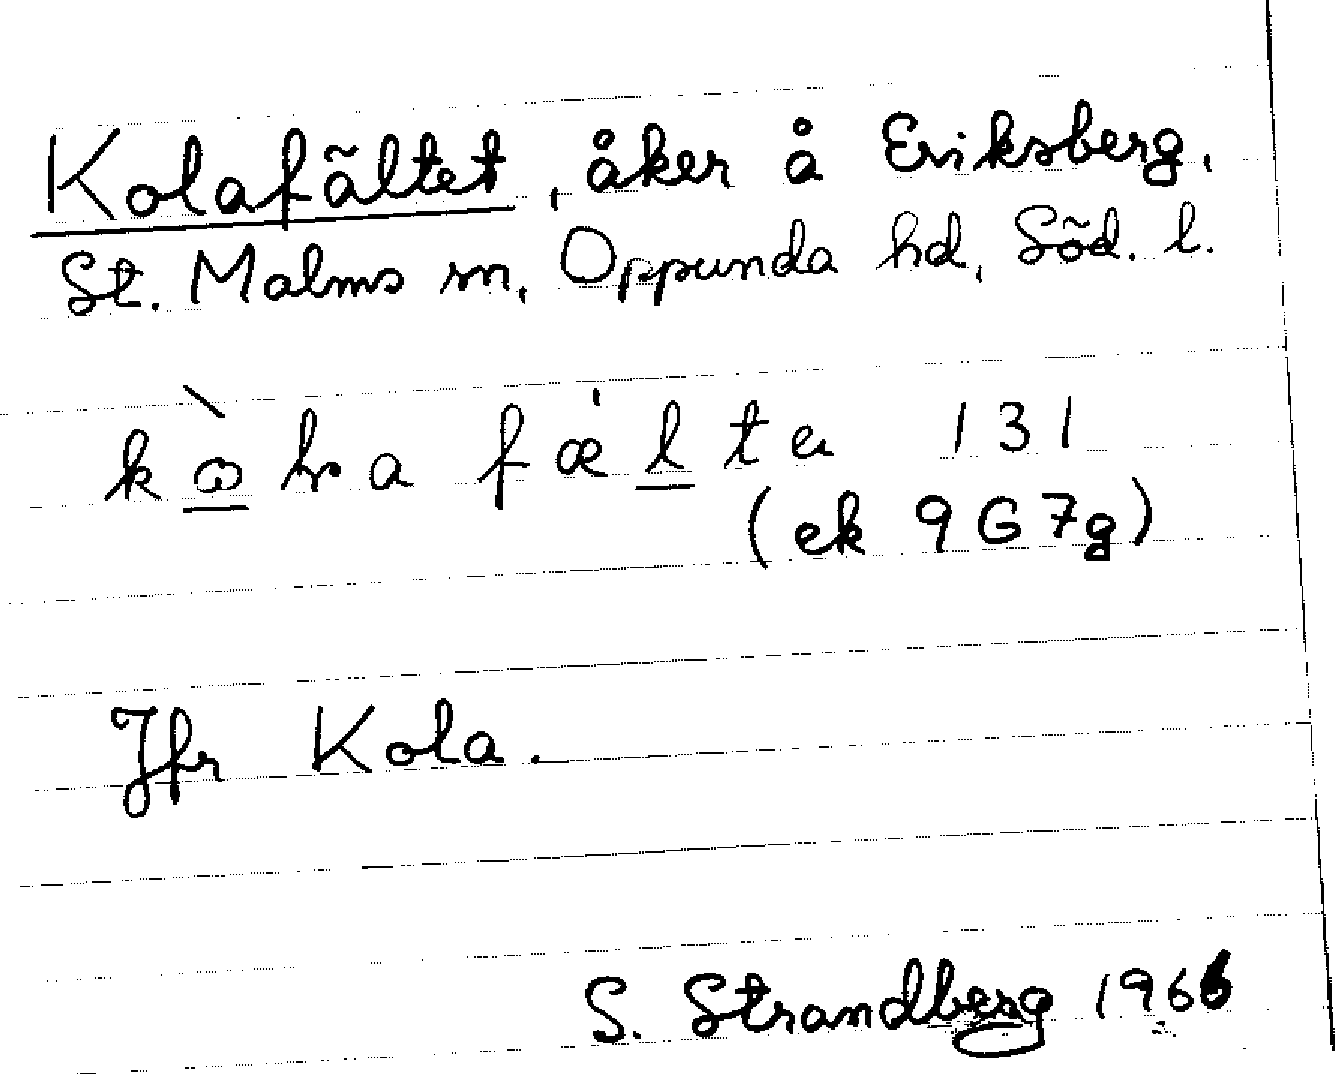 Kolafältet, åker å Eriksberg,
St. Malms sn, Oppunda hd, Söd. l.
fæ̀lta 131
(ek 9G7g)
Jfr Kola.
S. Strandberg 1966